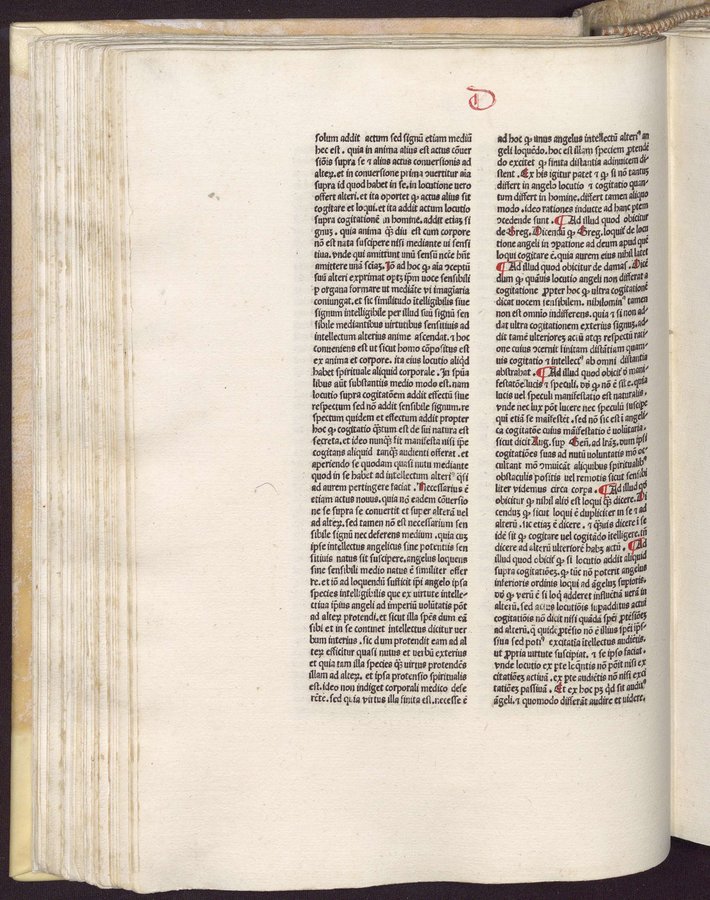 D
solum addit actum sed signū etiam mediū
hec est . quia in anima alius est actus cōuer
siōis supra se ⁊ alius actus conuersionis ad
alteꝝ. et in conuersione prima ɔuertitur aīa
supra id quod habet in se. in locutione uero
offert alteri. et ita oportet ꝙ actus alius sit
cogitare et loqui. et ita addit actum locutio
supra cogitationē in homine. addit etiaꝫ si
gnuꝫ . quia anima q̄ diu est cum corpore
nō est nata suscipere nisi mediante ui sensi
tiua. vnde qui amittunt unū sensū necē hn̄t
amittere unā sciaꝫ. Iō ad hoc ꝙ aīa ɔceptū
suū alteri exprimat optꝫ ip̄m uoce sensibili
ꝑ organa formare ut mediāte vi imagiaria
coniungat. et sic similitudo ītelligibilis siue
signum intelligibile per illud suū signū sen
sibile mediantibus virtutibus sensitiuis ad
intellectum alterius anime ascendat. ⁊ hoc
conueniens est ut sicut homo cōpositus est
ex anima et corpore. ita eius locutio aliqd̄
habet spirituale aliquid corporale . In spūa
libus aūt substantiis medio modo est. nam
locutio supra cogitatōem addit effectū siue
respectum sed nō addit sensibile signum. re
spectum quidem et effectum addit propter
hoc ꝙ cogitatio q̄tum est de sui natura est
secreta. et ideo nunq̄ sit manifesta nisi ip̄e
cogitans aliquid tanq̄ audienti offerat. et
aperiendo se quodam quasi nutu mediante
quod in se habet ad intellectum alteriꝰ q̄si
ad aurem pertingere faciat . Necessarius ē
etiam actus nouus. quia nō eadem cōuersio
ne se supra se conuertit et super alterā uel
ad alteꝝ. sed tamen nō est necessarium sen
sibile signū nec deferens medium . quia cuꝫ
ipse intellectus angelicus sine potentiis sen
sitiuis natus sit suscipere. angelus loquens
sine sensibili medio natus ē similiter offer
re. et iō ad loquendū sufficit ip̄i angelo ip̄sa
species intelligibilis que ex virtute intelle-
ctiua ip̄ius angeli ad imperiū uolūtatis pōt
ad alteꝝ protendi. et sicut illa sp̄es dum eā
sibi et in se continet intellectus dicitur ver
bum interius . sic dum protendit eam ad al
teꝝ efficitur quasi nutus et verbū exterius
et quia tam illa species q̄ virtus protendēs
illam ad alteꝝ. et ipsa protensio spiritualis
est. ideo non indiget corporali medico defe
rēte. sed quia virtus illa finita est. necesse ē
ad hoc ꝙ unus angelus intellectū alteriꝰ an
geli loquēdo. hoc est illam speciem ꝓtendē
do excitet ꝙ finita distantia adinuicem di-
stent . Ex his igitur patet ⁊ ꝙ si nō tantuꝫ
differt in angelo locutio ⁊ cogitatio quan-
tum differt in homine. differt tamen aliquo
modo . ideo rationes inducte ad hanc ꝑtem
ɔcedende sunt . ¶ Ad illud quod obicitur
de Greg. Dicendū ꝙ Greg. loquit̄ de locu
tione angeli in ɔpatione ad deum apud quē
loqui cogitare ē. quia aurem eius nihil latet
¶ Ad illud quod obicitur de damas . Dicē
dum ꝙ quāuis locutio angeli non differat a
cogitatione ꝓpter hoc ꝙ ultra cogitationē
dicat uocem sensibilem. nihilominꝰ tamen
non est omnio indifferens. quia ⁊ si non ad-
dat ultra cogitationem exterius signuꝫ. ad-
dit tamē ulterioreꝫ actū atqꝫ respectū rati-
one cuius ɔcernit finitam distātiam quam-
uis cogitatio ⁊ intellecꝰ ab omni distantia
abstrahat . ¶ Ad illud quod obicit̄ d̄ mani-
festatōe lucis ⁊ speculi. dō ꝙ nō ē sīle. quia
lucis uel speculi manifestatio est naturalis.
vnde nec lux pōt lucere nec speculū suscipe
qui etiā se māifestēt . sed nō sic est ī angeli-
ca cogitatōe cuius māifestatio ē uolūtaria.
sicut dicit Aug. sup Gen̄. ad lr̄aꝫ. dum ip̄si
cogitatiōes suas ad nutū voluntatis mō oc-
cultant mō ɔmuicāt aliquibus spiritualibꝰ
obstaculis positis vel remotis sicut sensibi
liter videmus circa corpa . ¶ Ad illud qd̄
obicitur ꝙ nihil aliō est loqui q̄ dicere. Di
cendū ꝙ sicut loqui ē dupliciter in se ⁊ ad
alterū . sic etiaꝫ ē dicere . ⁊ q̄uis dicere ī se
idē sit ꝙ cogitare uel cogitādo ītelligere. tn̄
dicere ad alterū ulteriorē habꝫ actū . ¶ Ad
illud quod obicit̄ ꝙ si locutio addit aliquid
supra cogitatiōeꝫ. ꝙ tūc nō poterit angelus
inferioris ordinis loqui ad āgelus supioris.
dō ꝙ verū ē si loq̄ adderet influētiā uerā in
alterū. sed actus locutiōis supadditus actui
cogitatiōis nō dicit nisi quādā sp̄ei ꝓtēsiōeꝫ
ad alterū. q̄ quidē ꝓtēsio nō ē illius sp̄ei ip̄s-
siua sed potiꝰ excitatīa ītellectus audiētis.
ut ꝓpria virtute suscipiat . ⁊ se ipso faciat .
vnde locutio ex pte leq̄ntis nō pōit nisi ex
citatiōeꝫ actiuā . ex pte audiētis nō nisi exci
tatiōeꝫ passiuā . Et ex hoc pꝫ qd̄ sit audiꝰ
āgeli. ⁊ quomodo differāt audire et videre.